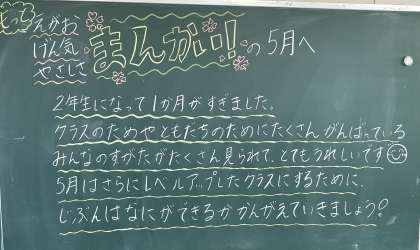 もっと
えがお
げん気
やさしさ
まんかい!の5月へ
2年生になって1か月がすぎました。
クラスのためやともだちのためにたくさんがんばっている
みんなのすがたがたくさん見られて、とてもうれしいです
5月はさらにレベルアップしたクラスにするために、
じぶんはなにができるかかんがえていきましょう?